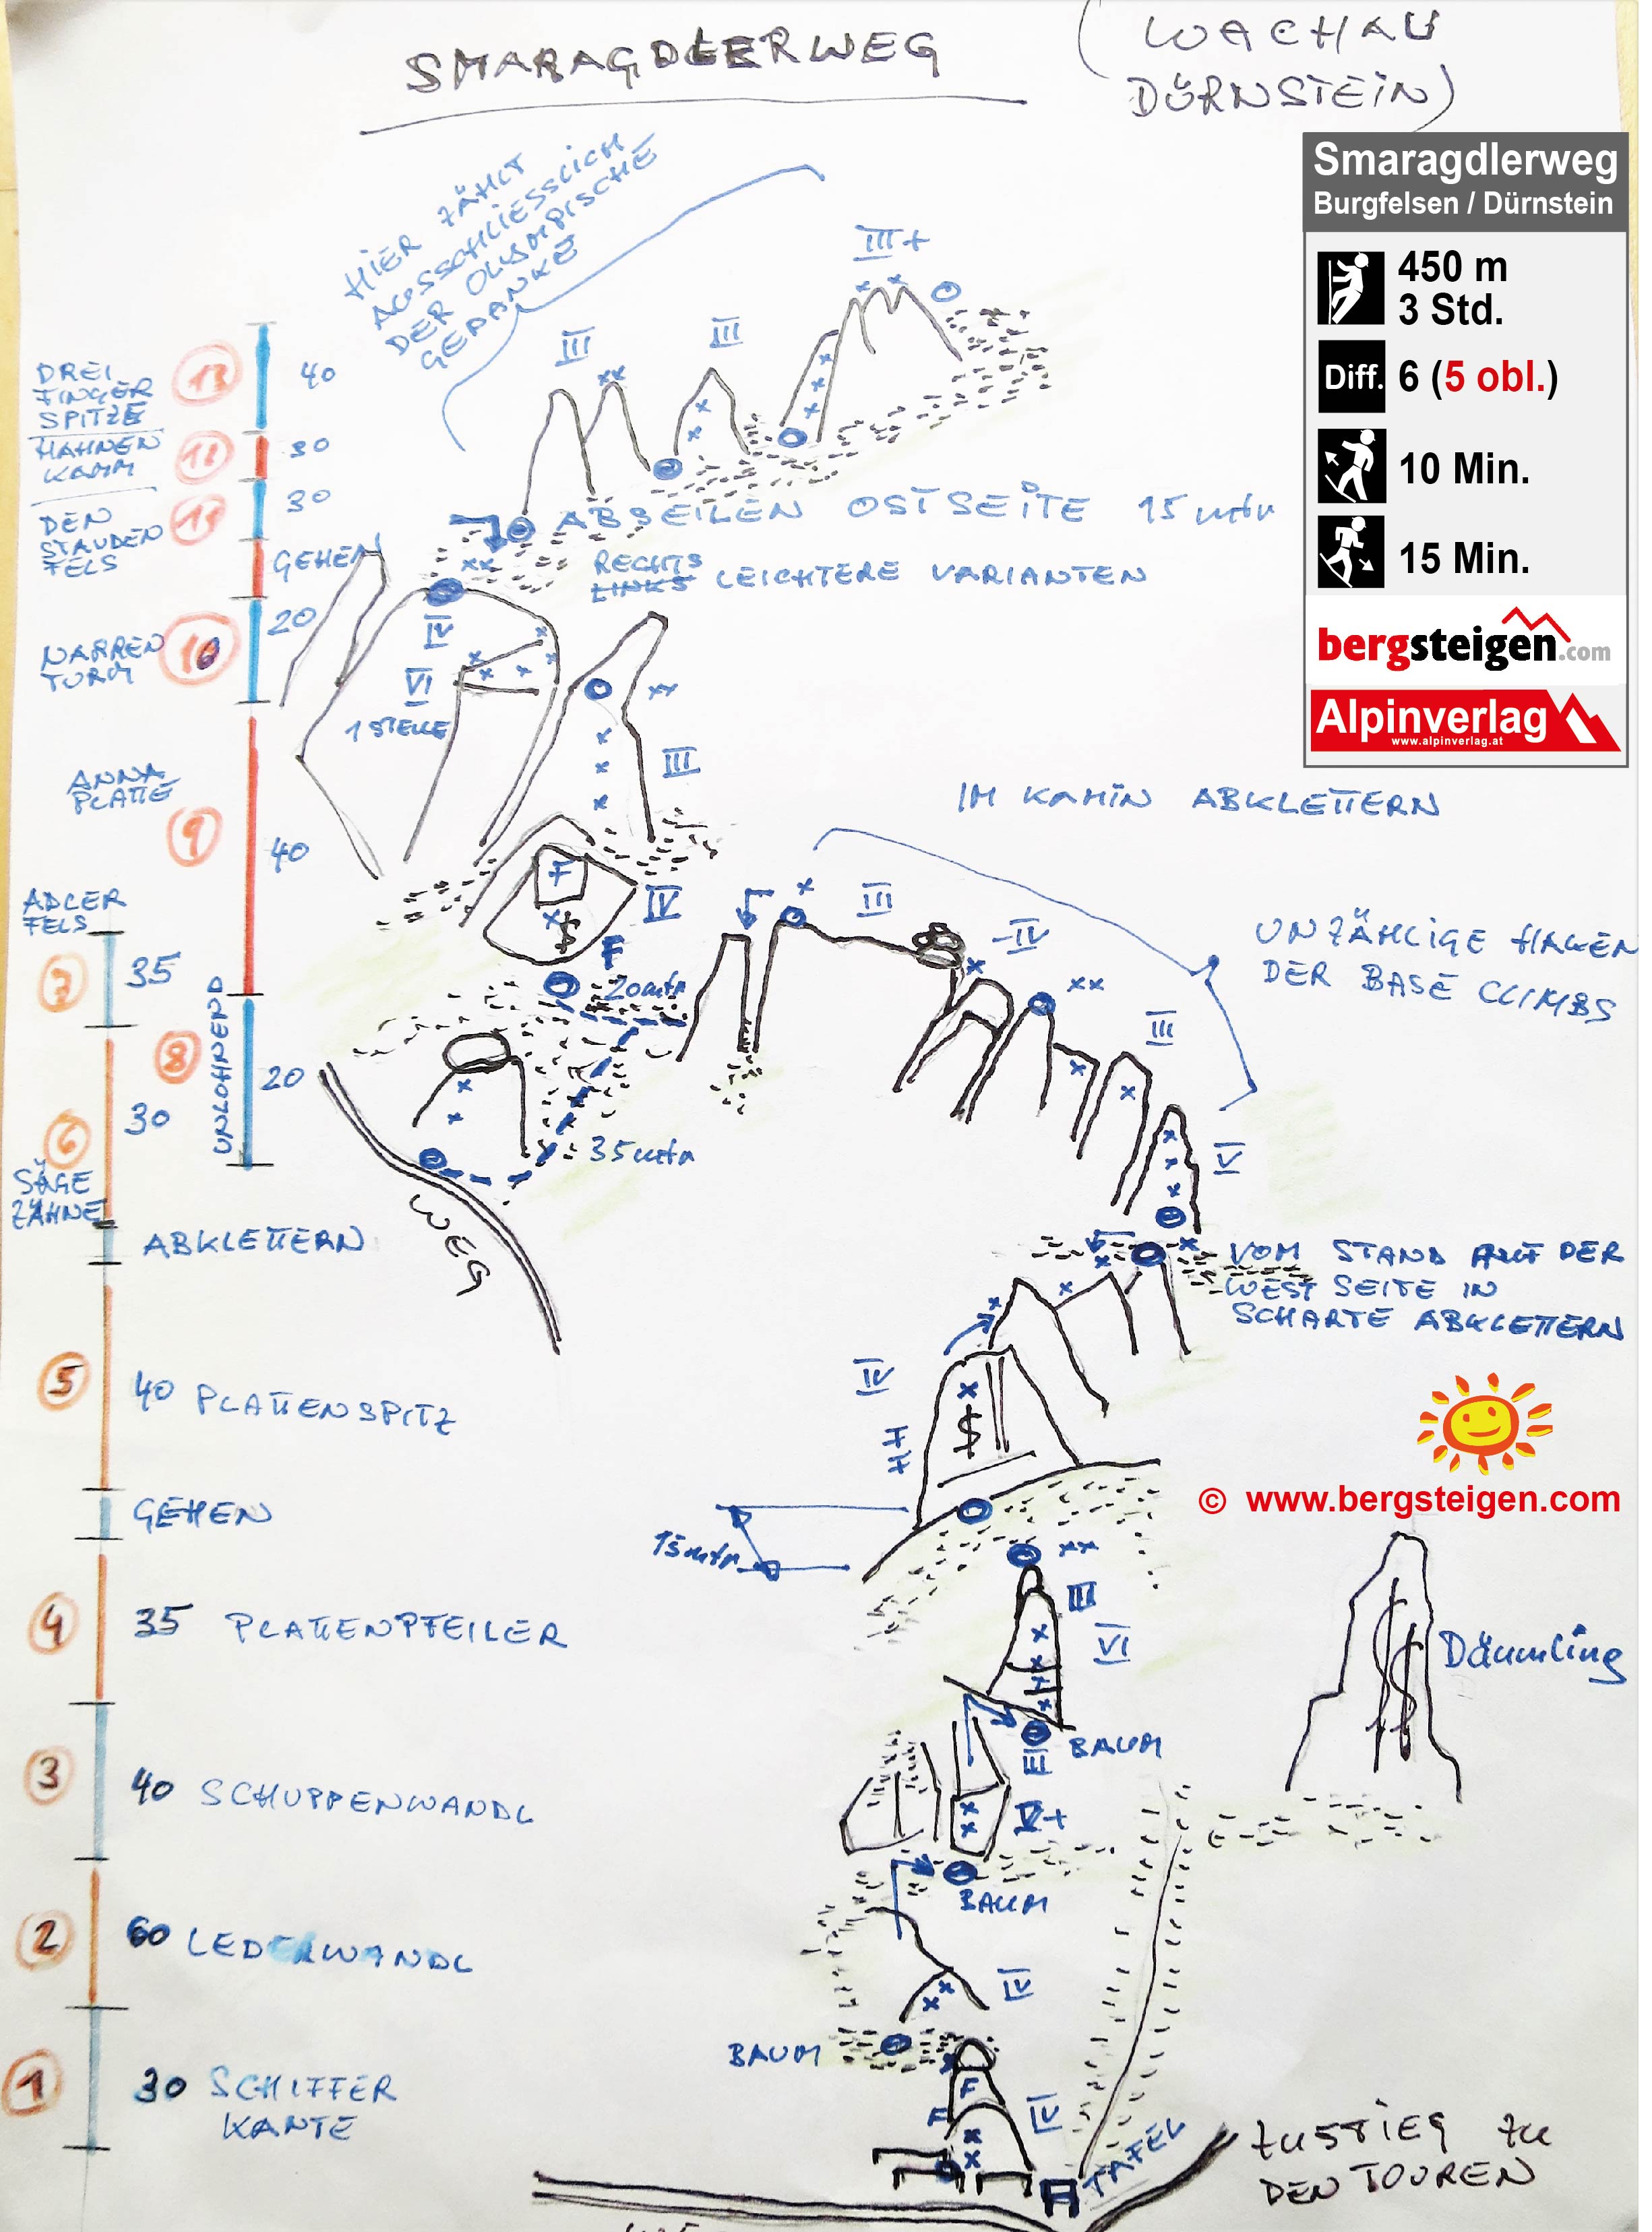 SMARAGDLERWEG
(WACHAU
DÜRNSTEIN)
Smaragdlerweg
Burgfelsen / Dürnstein
450 m
3 Std.
Diff. 6 (5 obl.)
10 Min.
15 Min.
bergsteigen.com
Alpinverlag
www.alpinverlag.at
HIER ZÄHLT
AUSSCHLIESSLICH
DER OLYMPISCHE
GEDANKE
III+
III
III
DREI
FINGER
SPITZE
13
40
HAHNEN
KAMM
12
30
DEN
STAUDEN
FELS
11
30
ABSEILEN OSTSEITE 15 mtr
GEHEN
RECHTS
LINKS LEICHTERE VARIANTEN
NARREN
TURM
10
20
IV
VI
1 STELLE
III
ANNA
PLATTE
9
40
IM KAMIN ABKLETTERN
F
IV
F
20 mtr
III
-IV
UNZÄHLIGE HAKEN
DER BASE CLIMBS
ADLER
FELS
7
35
UNLOHNEND
8
20
III
6
30
35 mtr
V
SÄGE
ZÄHNE
WEG
ABKLETTERN
VOM STAND AUF DER
WEST SEITE IN
SCHARTE ABKLETTERN
5
40 PLATTENSPITZ
IV
HH
© www.bergsteigen.com
GEHEN
15 mtr
4
35 PLATTENPFEILER
III
VI
Däumling
BAUM
III
3
40 SCHUPPENWANDL
V+
BAUM
2
60 LEDERWANDL
IV
BAUM
1
30 SCHIFFER
KANTE
F
F
IV
TAFEL
ZUSTIEG ZU
DEN TOUREN